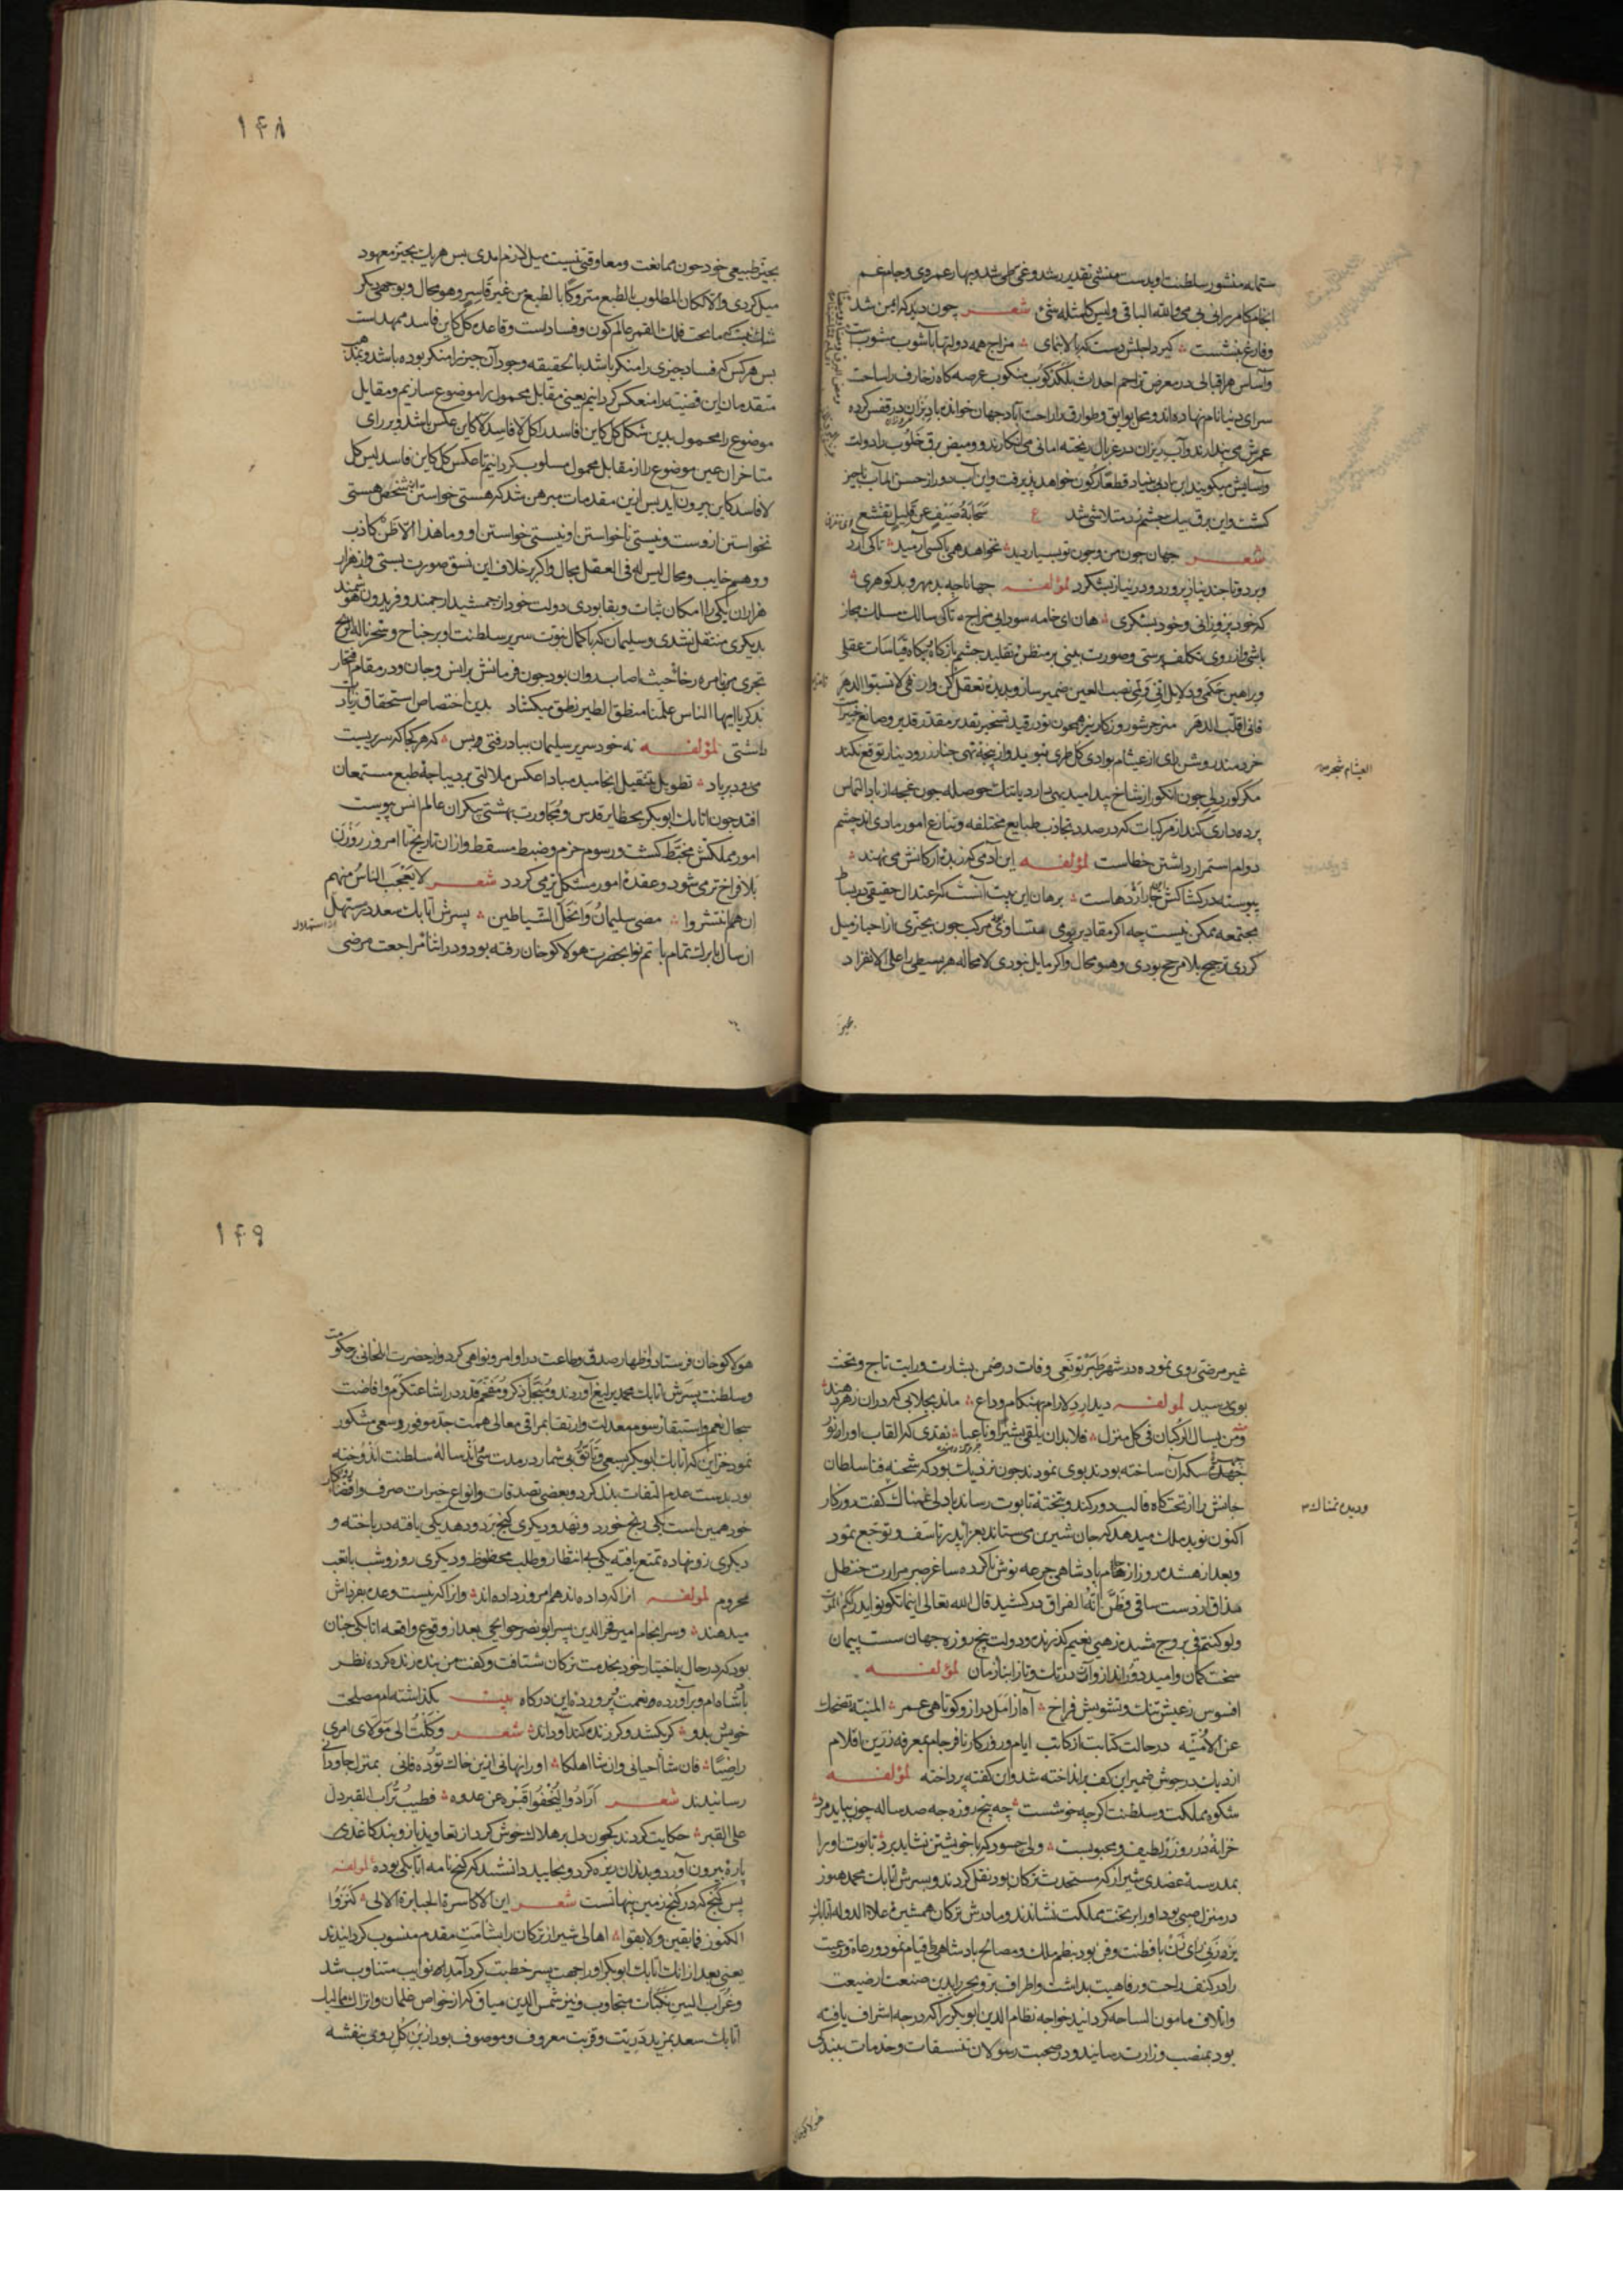 ستمایه منشور سلطنت او بدست منشی تقدیر رشد و غی طی شد و بهار عمر وی و جام غم
انجام کامرانی بی می والله الباقی ولیس کمثله شیء شعر چون دید که ایمن شد
وفارغ بنشست کیرد اجلش دست که بالا بنمای مزاج همه دولتها بآشوب مشوب
واساس هر اقبالی در معرض تزاحم احداث بلکدکوب منکوب عرصه کاه زخارف را ساحت
سرای دنیا نام نهاده اند و محل بوایق و طوارق را راحت آباد جهان خوانده باد بزان در قفس کرده
عمرش می پندارند و آب ریزان در غربال ریخته امانی می انکارند و ومیض برق خلوب را دولت
وآسایش میکویند این باد بی بنیاد قطعا کون خواهد پذیرفت و این آب دور از حسن المآب ناچیز
کشت و این برق بیک چشم زد متلاشی شد ع سحابة صیف عن قلیل تقشع
شعر جهان چون من و چون تو بسیار دید نخواهد همی با کسی آرمید تا کی آرد
وبرد و تا چند بناز پرورد و در نیاز بشکرد لمؤلفه جهانا چه بد مهر و بد کوهری
که خود پروزانی و خود بشکری هان ای خامه سودایی مزاج تا کی سالک مسلک مجاز
باشی و از روی تکلف پرستی و صورت بینی بر منظر تقلید چشم باز کاه بیکاه قیاسات عقلی
وبراهین حکمی و دلایل انی و لمی نصب العین ضمیر ساز و بدیده تعقل کن و ان فی لا تسبوا الدهر
فانی اقلب الدهر
خردمند روشن رای از عیشام بوادی کل طری نبوید و از پنجه تهی چنار زر و دینار توقع نکند
العیشام شجر
مکر کور دلی چون انکور از شاخ بید امید بهی دارد یا تنک حوصله چون غنچه از باد التماس
پرده داری کند از مرکبات که در صدد تجاذب طبایع مختلفه و تنازع امور مادی اند چشم
دوام استمرار داشتن خطاست لمؤلفه این آدمی که زبده ارکانش می نهند
پیوسته در کشاکش این چار اژدهاست برهان این بیت آنست که اعتدال حقیقی در بسایط
مجتمعه ممکن نیست چه اکر مقادیر بوی متساوی بودی مرکب چون بحیزی از احیاز میل
کردی ترجیح بلا مرجح بودی و هو محال و اکر مایل نبودی لا محاله هر بسیطی را علی الانفراد
بحیز
۱۴۸
بحیز طبیعی خود چون ممانعت و معاوقتی نیست میل لازم امدی پس هر یک بحیز معهود
میل کردی والا لکان المطلوب بالطبع متروکا بالطبع من غیر قاسر و هو محال و بوجهی دیکر
شک نیست که ما تحت فلک القمر عالم کون و فساد است و قاعده کل کاین فاسد ممهد است
پس هر کس که فساد چیزی را منکر باشد بالحقیقه وجود آن چیز را منکر بوده باشد و بمذهب
متقدمان این قضیه را منعکس کردانیم یعنی مقابل محمول را موضوع سازیم و مقابل
موضوع را محمول بدین شکل کل کاین فاسد را کل لا فاسد لا کاین عکس باشد و بر رای
متاخران عین موضوع را از مقابل محمول مسلوب کردانیم تا عکس کل کاین فاسد لیس کل
لا فاسد کاین بیرون آید پس ازین مقدمات مبرهن شد که هستی خواستن این شخص هستی
نخواستن اوست و نیستی ناخواستن او نیستی خواستن او وما هذا الا ظن کاذب
ووهم خایب و محال لیس له فی العقل مجال و اکر بر خلاف این نسق صورت بستی و از هزار
هزاران یکی را امکان ثبات و بقا بودی دولت خود از جمشید ارجمند و فریدون هوشمند
بدیکری منتقل نشدی و سلیمان که با کمال نبوت سریر سلطنت او بر جناح و سخرنا له الریح
تجری بامره رخاء حیث اصاب روان بود چون فرمانش بر انس و جان و در مقام افتخار
بذکر یا ایها الناس علمنا منطق الطیر نطق میکشاد بدین اختصاص استحقاق زیادت
داشتی لمؤلفه نه خود سریر سلیمان بباد رفتی و بس که هر کجا که سریریست
می رود بر باد تطویل بتثقیل انجامید مبادا عکس ملالتی بر دیباجه طبع مستمعان
افتد چون اتابک ابوبکر بحظایر قدس و مجاورت بهشتی پیکران عالم انس پیوست
امور مملکتش مخبط کشت و رسوم حزم و ضبط مسقط و از ان تاریخ تا امروز روزن
بلا فراخ تر می شود و عقده امور مشکل تر می کردد شعر لا یعجب الناس منهم
ان هم انتشروا مضی سلیمان وانحل الشیاطین پسرش اتابک سعد در مستهل
ان سال با برک تمام بانم نوا بحضرت هولاکو خان رفته بود و در اثنا مراجعت مرضی
غیر مرضی روی نموده در شهر طبرتو نعی وفات در ضمن بشارت ورایت تاج و تخت
بوی رسید لمؤلفه دیدار دلارام بهنکام وداع ماند بجلابی که در ان زهر دهند
ومن یسال الرکبان فی کل منزل فلا بد ان یلقی بشیرا وناعیا نقدی که القاب او را نو
سکه آن ساخته بودند بوی نمودند چون نزدیک بود که شحنه فنا سلطان
جانش را از تخت کاه قالب دور کند و بتخته تابوت رساند با دلی غمناک کفت روزکار
ودیدن نمناک
اکنون نوید ملک میدهد که جان شیرین می ستاند بعز اید بر تاسف و توجع نمود
وبعد از هشده روز از جام پادشاهی جرعه نوش ناکرده ساغر صبر مرارت حنظل
مذاق از دست ساقی وظن انه الفراق درکشید قال الله تعالی اینما تکونوا یدرککم الموت
ولو کنتم فی بروج مشیده زهی نعیم کذرنده و دولت پنج روزه جهان سست پیمان
سخت کمان و امید دور انداز و آز در تک و تاز ابناء زمان لمؤلفه
افسوس ز عیش تنک و تشویش فراخ آه از امل دراز و کوتاهی عمر المنیة تضحک
عن الامنیه در حالت کتابت از کاتب ایام و روزکار نافرجام بمعرفه زرین اقلام
شکوه مملکت و سلطنت اکرچه خوشست چه پنج روزه چه صد ساله چون بباید مرد
خزانه در و زر لطیف و محبوبست ولی چه سود که با خویشتن نشاید برد تابوت او را
بمدرسه عضدی شیراز که مستحدث ترکان بود نقل کردند و پسرش اتابک محمد هنوز
در منزل صبی بود او را بر تخت مملکت نشاندند و مادرش ترکان همشیره علاء الدوله اتابک
یزد زنی رای زن بافطنت وفن بود بنظم ملک و مصالح پادشاهی قیام نمود و رعاة و رعیت
را در کنف راحت و رفاهیت بداشت و اطراف بر و بحر را بدین صنعت از ضیعت
واتلاف مامون الساحه کردانید خواجه نظام الدین ابوبکر را که درجه اشراف یافته
بود بمنصب وزارت رسانید و در صحبت رسولان تنسقات و خدمات ببندکی
هولاکو خان
۱۴۹
هولاکو خان فرستاد و اظهار صدق وطاعت در اوامر و نواهی کرد و از حضرت ایلخانی حکومت
وسلطنت پسرش اتابک محمد یرلیغ آوردند و مبجل ذکر و مفخم قدر در اشاعت کرم و افاضت
سجال نعم و استبقاء رسوم معدلت و ارتقا بمراقی معالی همت جد موفور و سعی مشکور
نمود خزاین که اتابک ابوبکر بسعی و تانق بی شمار در مدت سی اند ساله سلطنت اندوخته
بود بدست عدم التفات بذل کرد و بعضی تصدقات و انواع خیرات صرف و اقتضاء روزکار
خود همین است یکی رنج خورد و نهد و دیکری کنج برد و دهد یکی یافته در باخته و
دیکری نونهاده تمتع یافته یکی بی انتظار و طلب محظوظ و دیکری روز و شب با تعب
محروم لمؤلفه انرا که داده اند هم امروز داده اند وانرا که نیست وعده بفرداش
میدهند وسرانجام امیر فخرالدین پسر ابونصر حوایجی بعد از وقوع واقعه اتابکی چنان
بود که در حال باختیار خود بخدمت ترکان شتافت و کفت من بنده زنده کرده نظر
پادشاه ام و برآورده و نعمت پرورده این درکاه بیت بکذاشته ام مصلحت
خویش بدو کر بکشد و کر زنده کند او داند شعر وکلت الی مولای امری
راضیا فان شا احیانی وان شا اهلکا او را نهانی ازین خاک توده فانی بمنزل جاودانی
رسانیدند شعر ارادوا لیخفوا قبره عن عدوه فطیب تراب القبر دل
علی القبر حکایت کردند که چون دل بر هلاک خوش کرد از تعاویذ بازوبند کاغذی
پاره بیرون آورد و بدندان ریزه کرد و بخایید دانستند که کنج نامه اتابکی بوده لمؤلفه
بس کنج که در کنج زمین پنهانست شعر این الاکاسرة الجبابرة الالی کنزوا
الکنوز فما بقین ولا بقوا اهالی شیراز ترکان را بشامت مقدم منسوب کردانیدند
یعنی بعد از انک اتابک ابوبکر او را جهت پسر خطبت کرد آمدن نوایب متناوب شد
وغراب البین نکبات متجاوب و نیز شمس الدین میاق که از خواص غلمان و اتراک ممالیک
اتابک سعد بمزید دربت و قربت معروف و موصوف بود از بن کل روی بنفشه